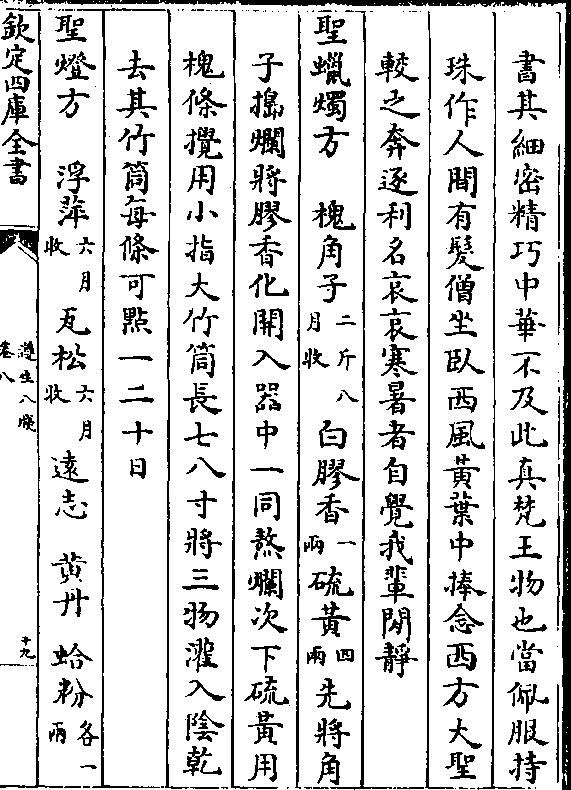 書其細密精巧中華不及此真梵王物也當佩服持
珠作人間有髮僧坐臥西風黃葉中捧念西方大聖
較之奔逐利名哀哀寒暑者自覺我輩閒靜
聖蠟燭方　槐角子二斤八月收　白膠香一兩　硫黃四兩　先將角
子搗爛將膠香化開入器中一同熬爛次下硫黃用
槐條攪用小指大竹筒長七八寸將三物灌入陰乾
去其竹筒每條可點一二十日
聖燈方　浮萍六月收　瓦松六月收　遠志　黃丹　蛤粉各一兩
欽定四庫全書
遵生八牋
卷八
十九